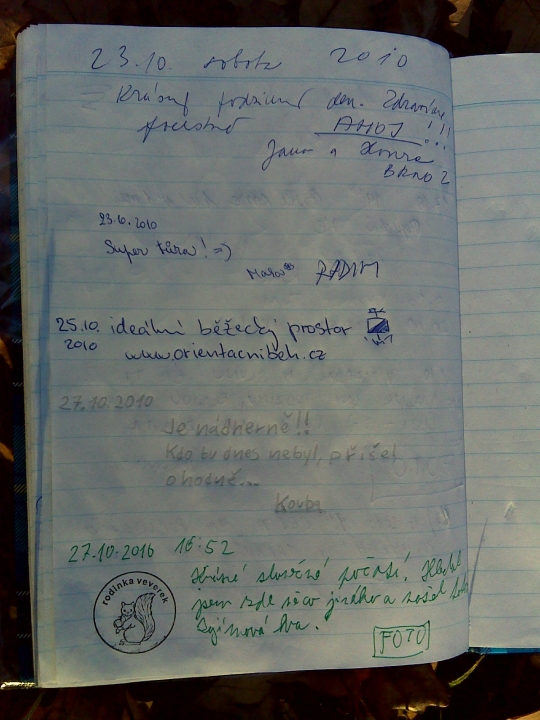 23.10. sobota 2010
Krásný podzimní den. Zdravíme
AHOJ !!!
Jana a Honza
BRNO 2
23.10.2010
Super túra! =)
RADIM
25.10. ideální běžecký prostor
2010 www.orientacnibeh.cz
27.10.2010
Je nádherně!!
Kdo tu dnes nebyl, přišel
o hodně...
Kovba
27.10.2010 16:52
rodinka veverek
slunečné počasí. Hledal
jsem zde něco jiného a našel
FOTO